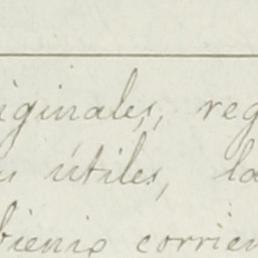 iginales, reg
útiles, la
bienio corrien